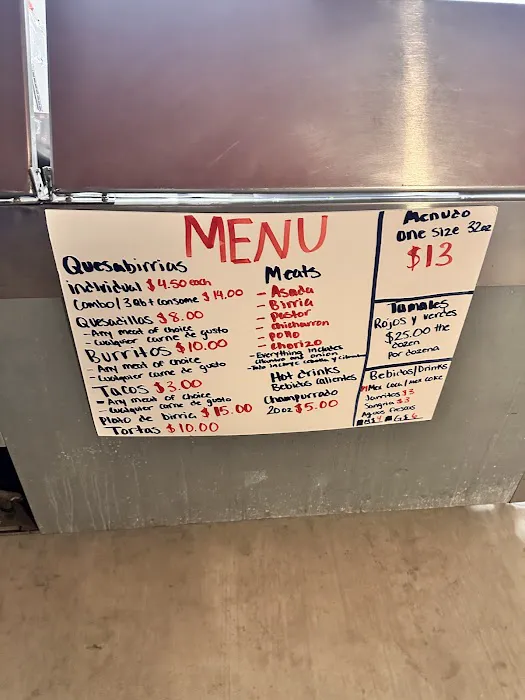 MENU
Quesabirrias
individual $4.50 each
Combo/3 qb + consome $14.00
Quesadillas $8.00
- Any meat of choice
- Cualquier carne de gusto
Burritos $10.00
- Any meat of choice
- Cualquier carne de gusto
Tacos $3.00
- Any meat of choice
- Cualquier carne de gusto
Plato de birria $15.00
Tortas $10.00
Meats
- Asada
- Birria
- Pastor
- chicharron
- Pollo
- chorizo
- Everything includes
cilantro and onion
Hot drinks
Bebidas calientes
Champurrado
20oz $5.00
Menudo
one size 32oz
$13
Tamales
Rojos y verdes
$25.00 the
dozen
Por docena
Bebidas/Drinks
Mex Coca/mex coke
Jarritos $3
Sangria $3
Aguas frescas